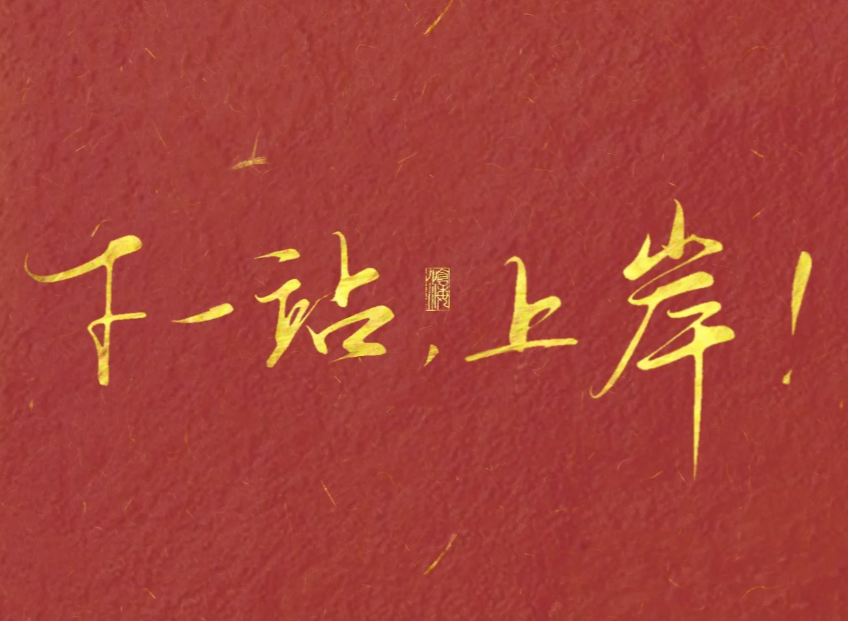 下一站,上岸!